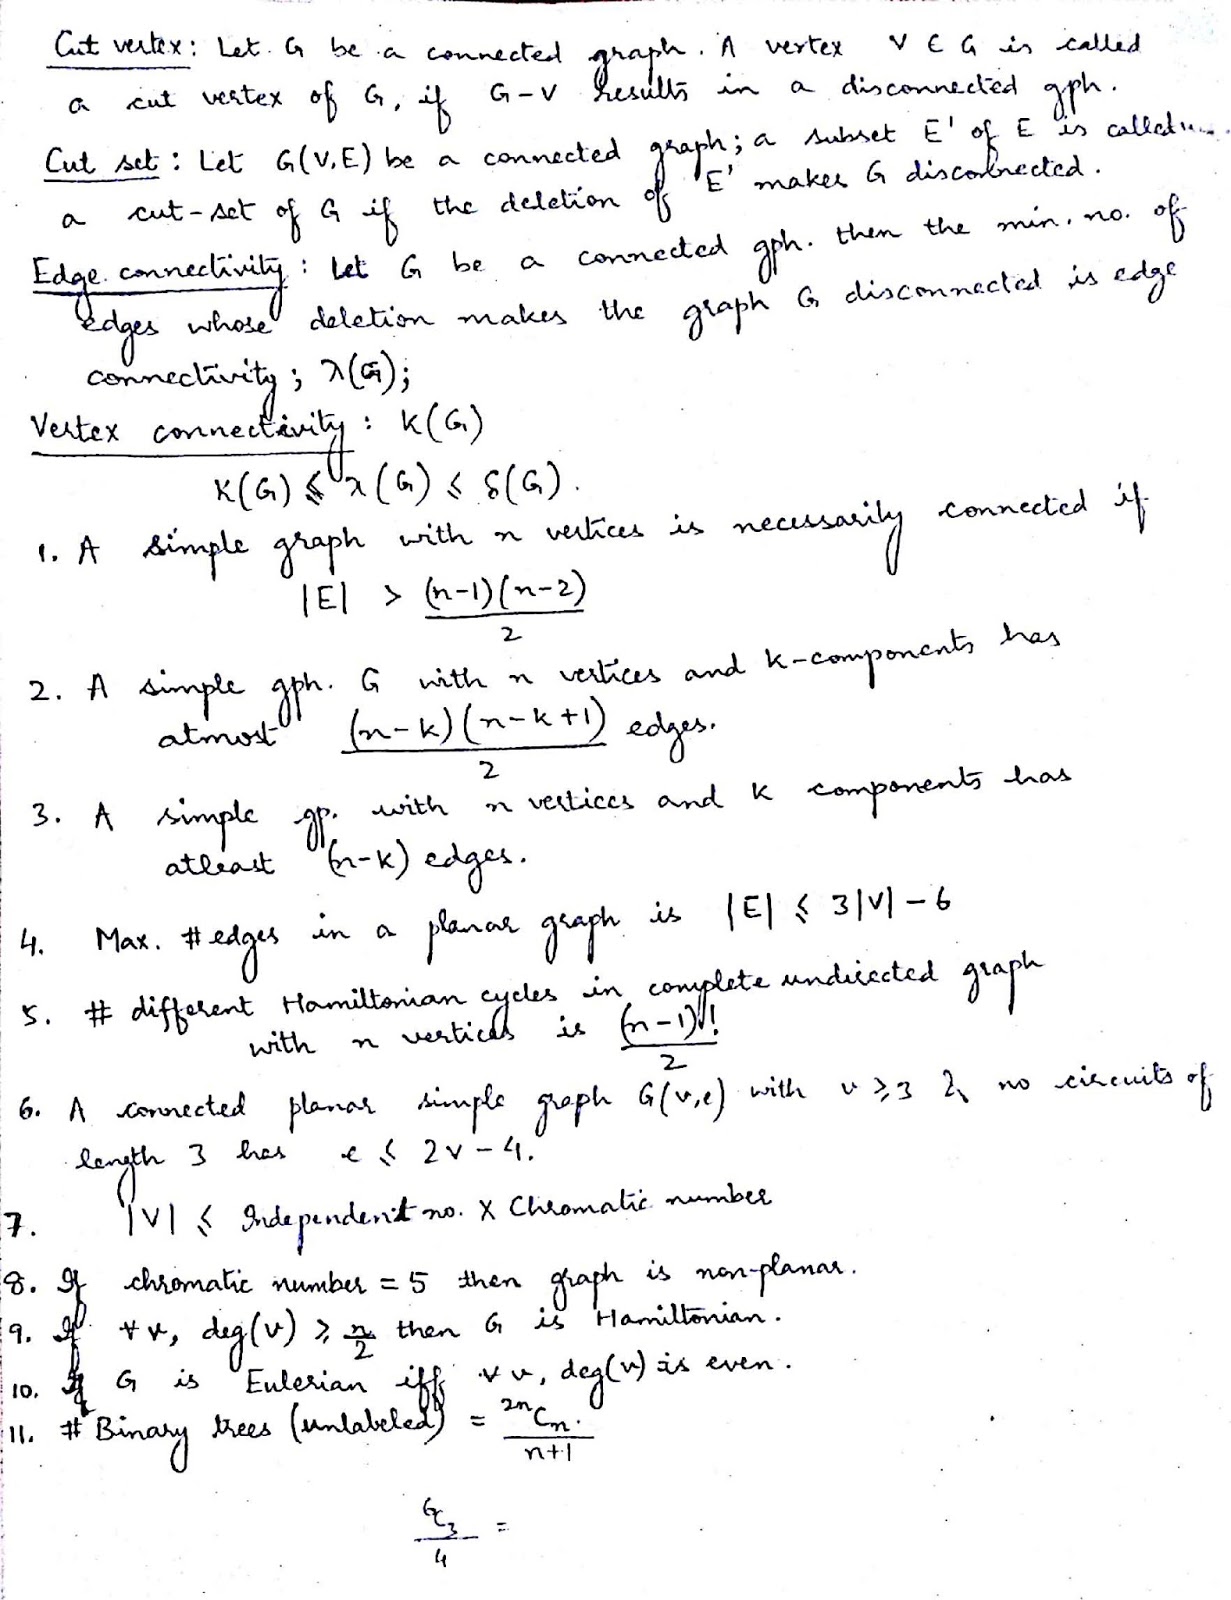 Cut vertex: Let G be a connected graph. A vertex V ∈ G is called
a cut vertex of G, if G-V results in a disconnected gph.
Cut set: Let G(V,E) be a connected graph; a subset E' of E is called
a cut-set of G if the deletion of E' makes G disconnected.
Edge connectivity: Let G be a connected gph. then the min. no. of
edges whose deletion makes the graph G disconnected is edge
connectivity; λ(G);
Vertex connectivity: K(G)
K(G) ≤ λ(G) ≤ δ(G).
1. A simple graph with n vertices is necessarily connected if
|E| > (n-1)(n-2)/2
2. A simple gph. G with n vertices and k-components has
atmost (n-k)(n-k+1)/2 edges.
3. A simple gp. with n vertices and k components has
atleast (n-k) edges.
4. Max. # edges in a planar graph is |E| ≤ 3|V| - 6
5. # different Hamiltonian cycles in complete undirected graph
with n vertices is (n-1)!/2
6. A connected planar simple graph G(v,e) with v ≥ 3 & no circuits of
length 3 has e ≤ 2v - 4.
7. |V| ≤ Independent no. X Chromatic number
8. If chromatic number = 5 then graph is non-planar.
9. If ∀ v, deg(v) ≥ n/2 then G is Hamiltonian.
10. G is Eulerian iff ∀ v, deg(v) is even.
11. # Binary trees (unlabeled) = 2nCn/n+1
6C3/4 =